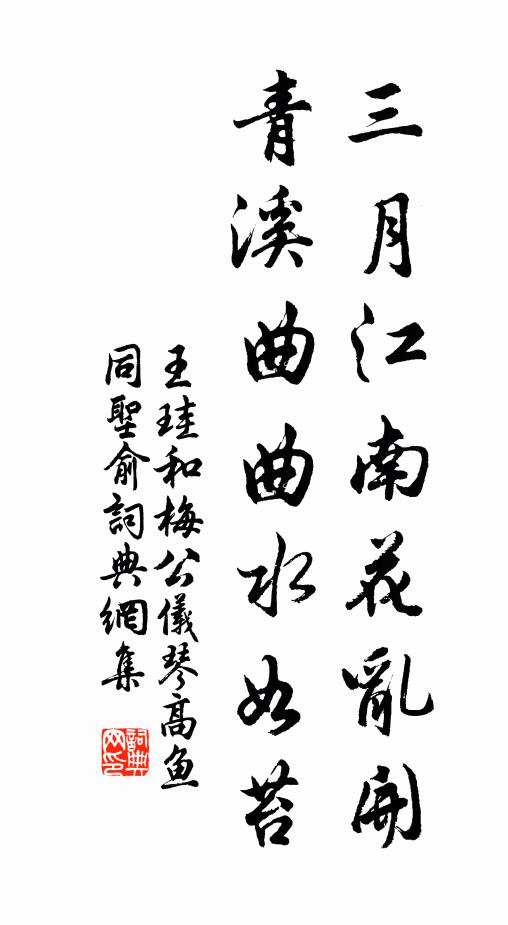 三月江南花亂開
青溪曲曲水如苔
王珪和梅公儀琴高魚
同聖俞詞典網集
詞典网印